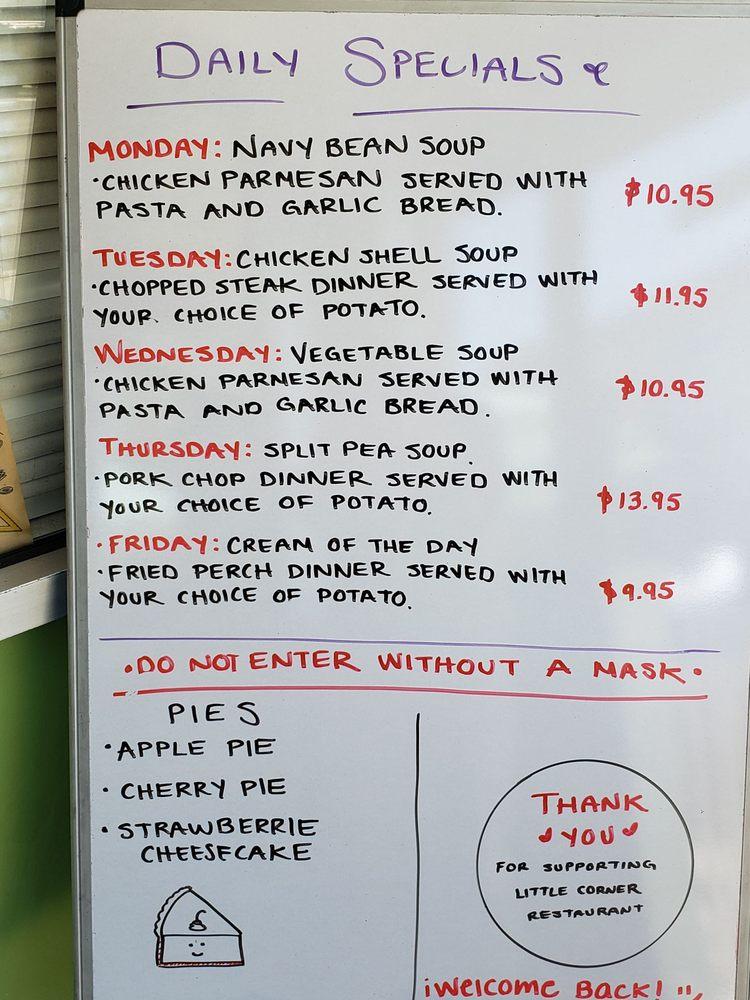 DAILY SPECIALS
MONDAY: NAVY BEAN SOUP
•CHICKEN PARMESAN SERVED WITH
PASTA AND GARLIC BREAD. $10.95
TUESDAY: CHICKEN SHELL SOUP
•CHOPPED STEAK DINNER SERVED WITH
YOUR CHOICE OF POTATO. $11.95
WEDNESDAY: VEGETABLE SOUP
•CHICKEN PARMESAN SERVED WITH
PASTA AND GARLIC BREAD. $10.95
THURSDAY: SPLIT PEA SOUP.
•PORK CHOP DINNER SERVED WITH
YOUR CHOICE OF POTATO. $13.95
•FRIDAY: CREAM OF THE DAY
•FRIED PERCH DINNER SERVED WITH
YOUR CHOICE OF POTATO. $9.95
•DO NOT ENTER WITHOUT A MASK•
PIES
•APPLE PIE
•CHERRY PIE
•STRAWBERRIE
CHEESECAKE
THANK
YOU
FOR SUPPORTING
LITTLE CORNER
RESTAURANT
¡Welcome Back!